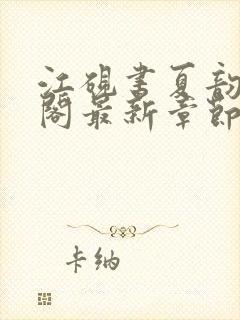 江砚书夏韵
阁最新章节
卡纳